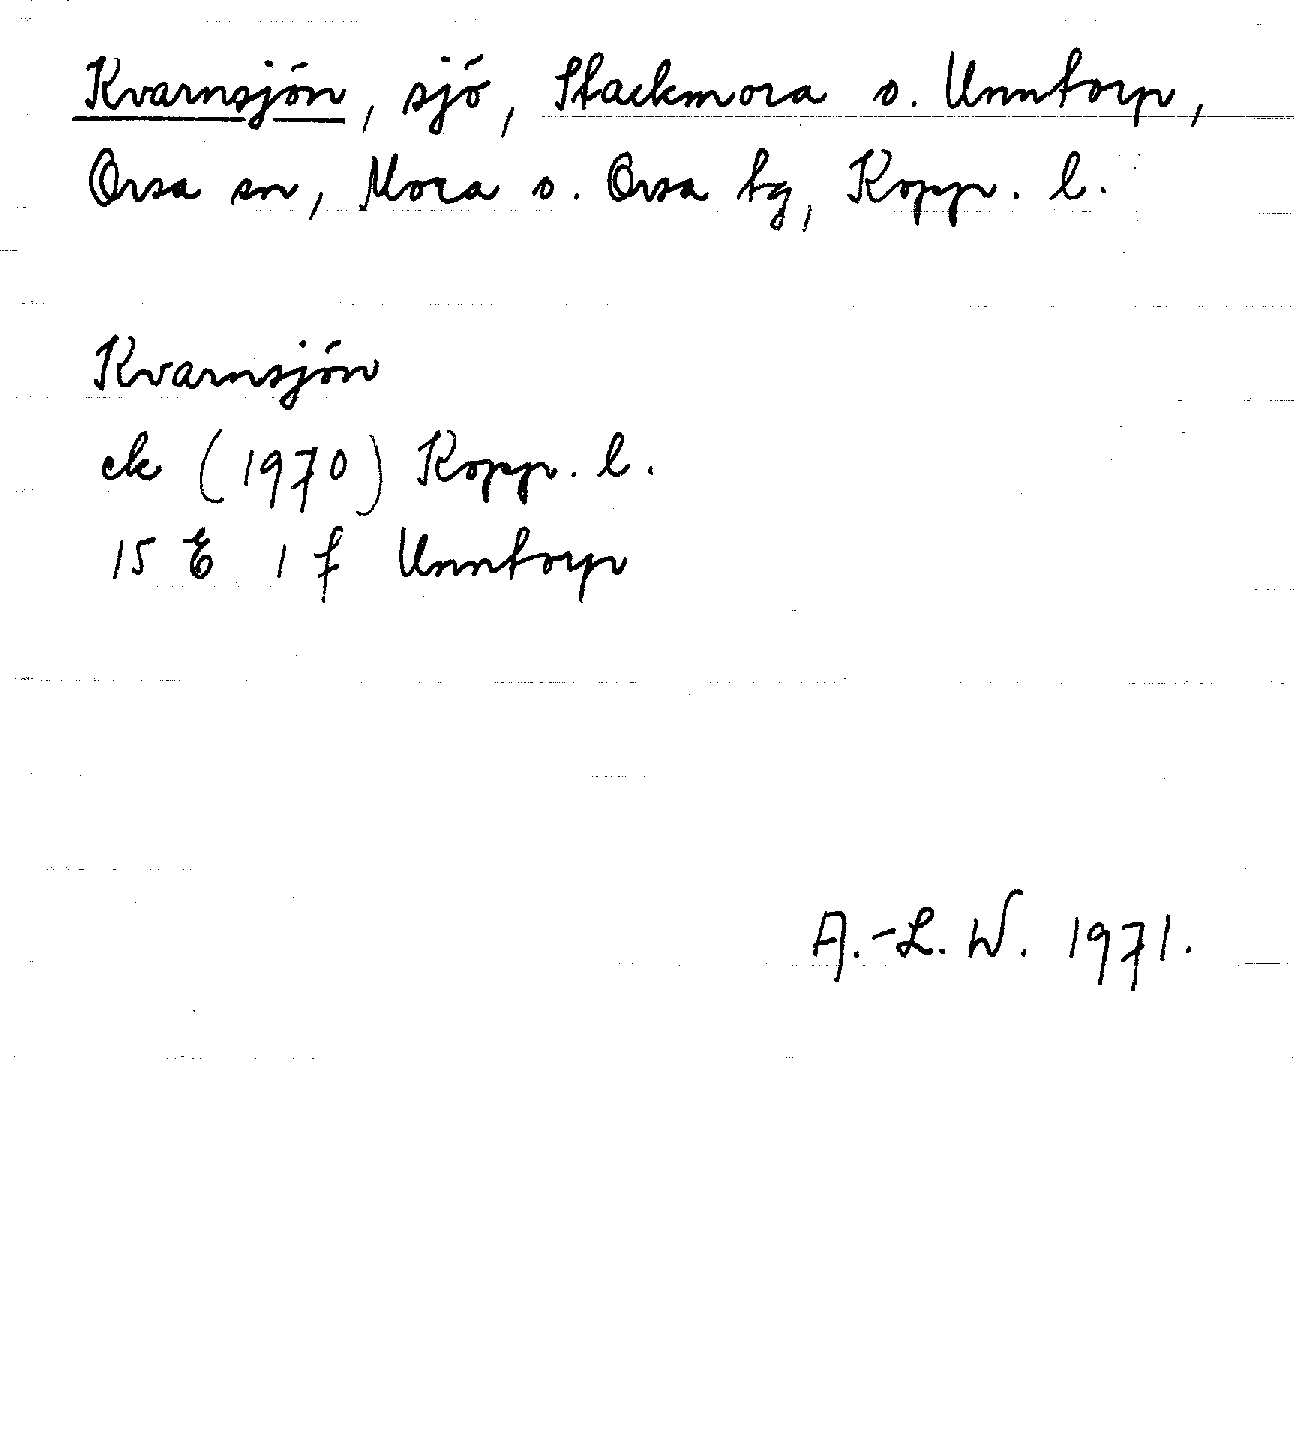 Kvarnsjön, sjö, Stackmora o. Unntorp,
Orsa sn, Mora o. Orsa tg, Kopp. l.
Kvarnsjön
ek (1970) Kopp. l.
15 E 1 f Unntorp
A.-L. W. 1971.